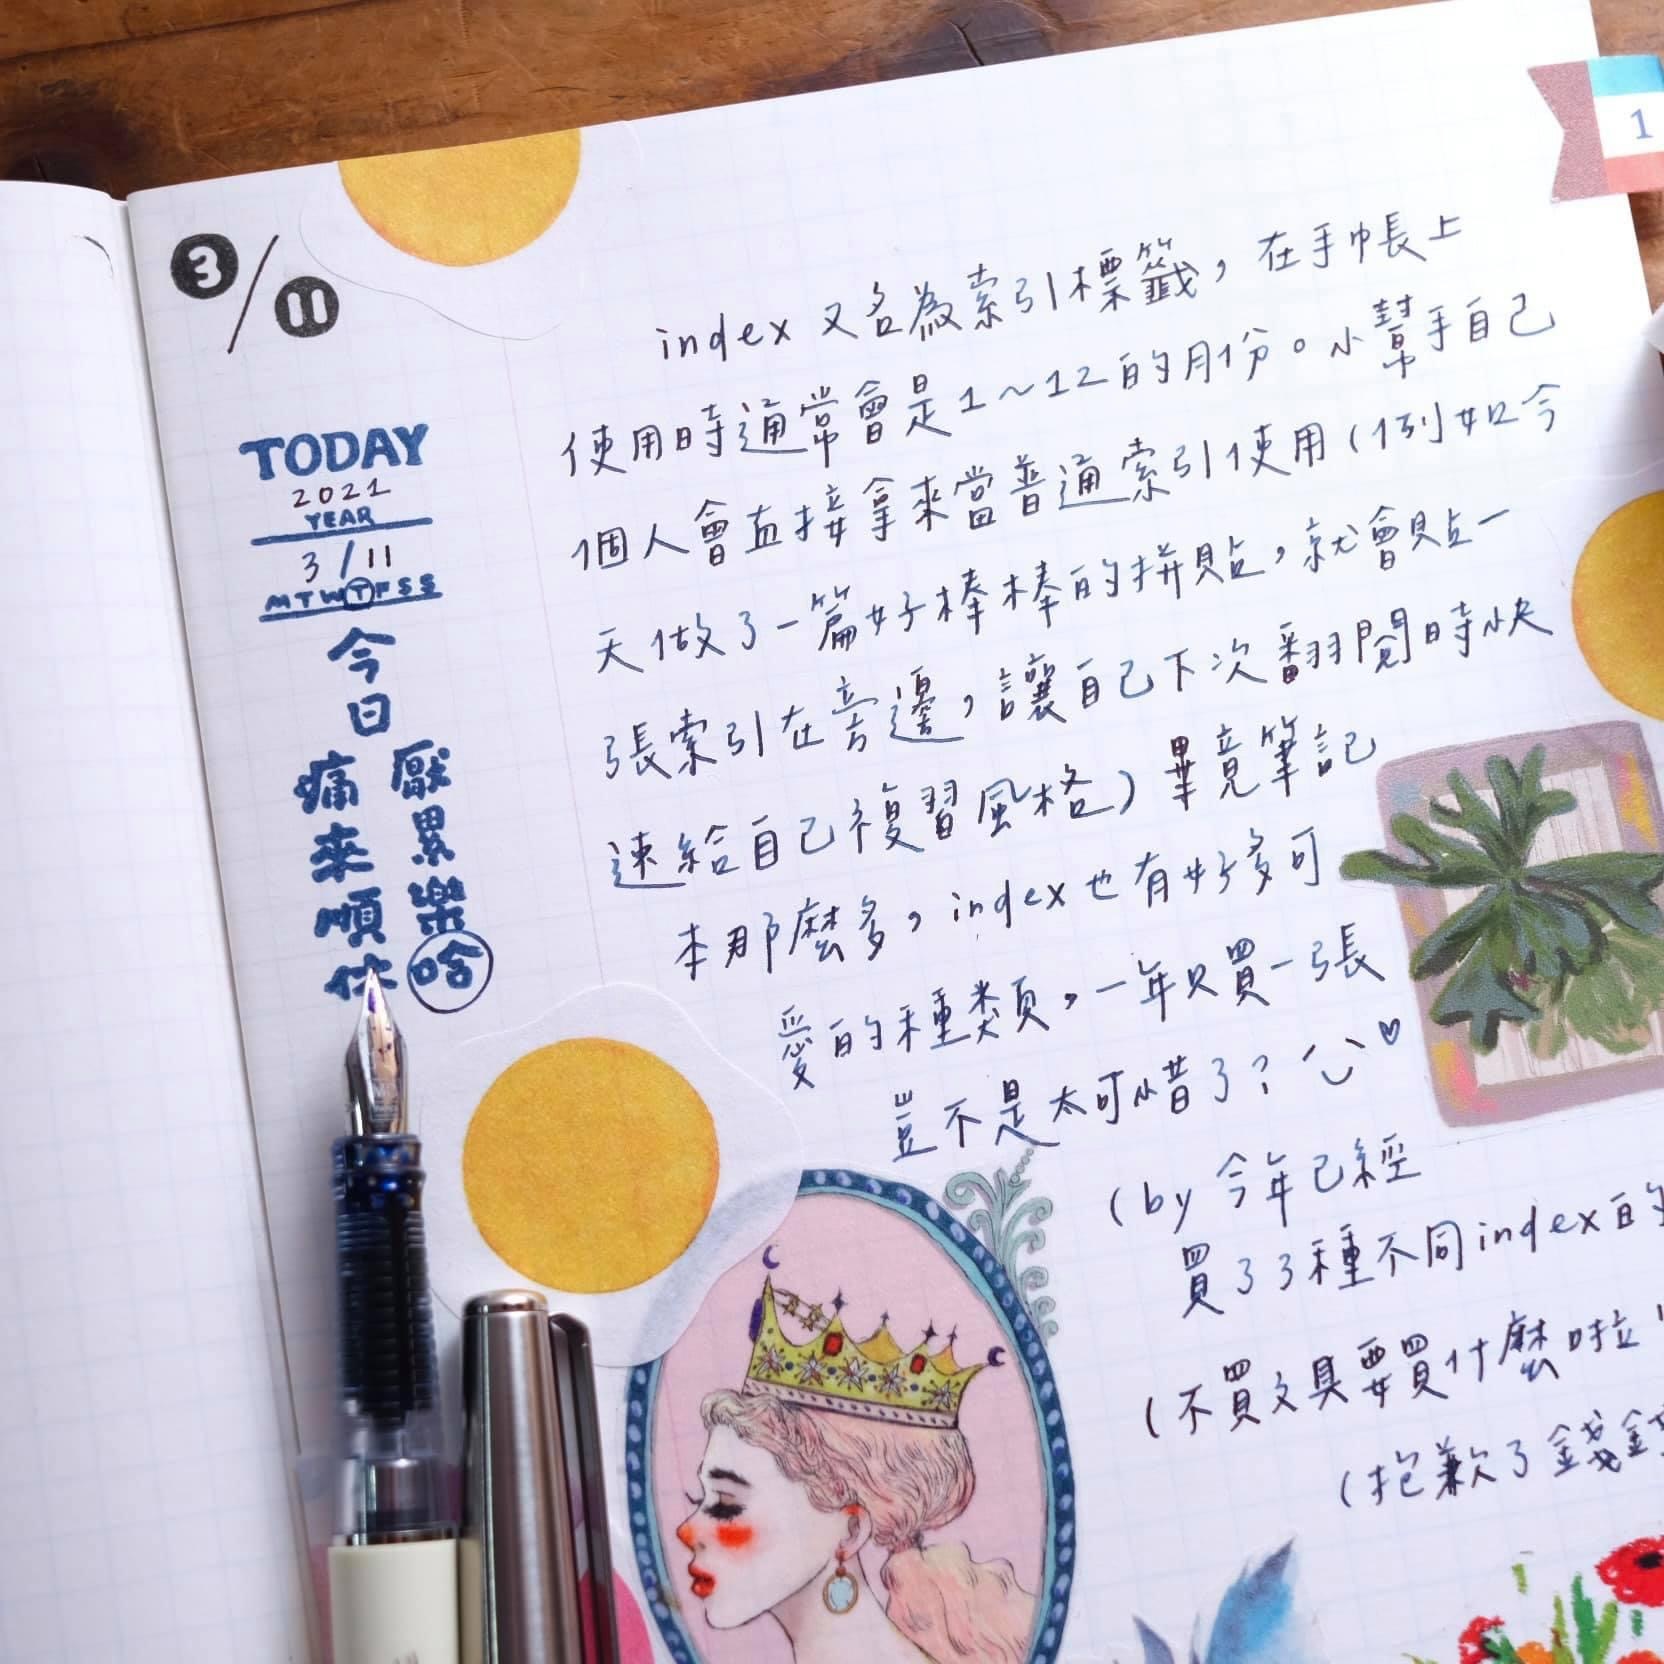 3/11
TODAY
2021
YEAR
3/11
MTWTFSS
今日
厭累樂哈
痛來順休
1
index又名為索引標籤，在手帳上
使用時通常會是1~12的月份。小幫手自己
個人會直接拿來當普通索引使用(例如今
天做了一篇好棒棒的拼貼，就會貼一
張索引在旁邊，讓自己下次翻閱時快
速給自己複習風格)畢竟筆記
本那麼多，index也有好多可
愛的種類，一年只買一張
豈不是太可惜了?
(by今年已經
買了3種不同index的
(不買文具要買什麼啦
(抱歉了錢